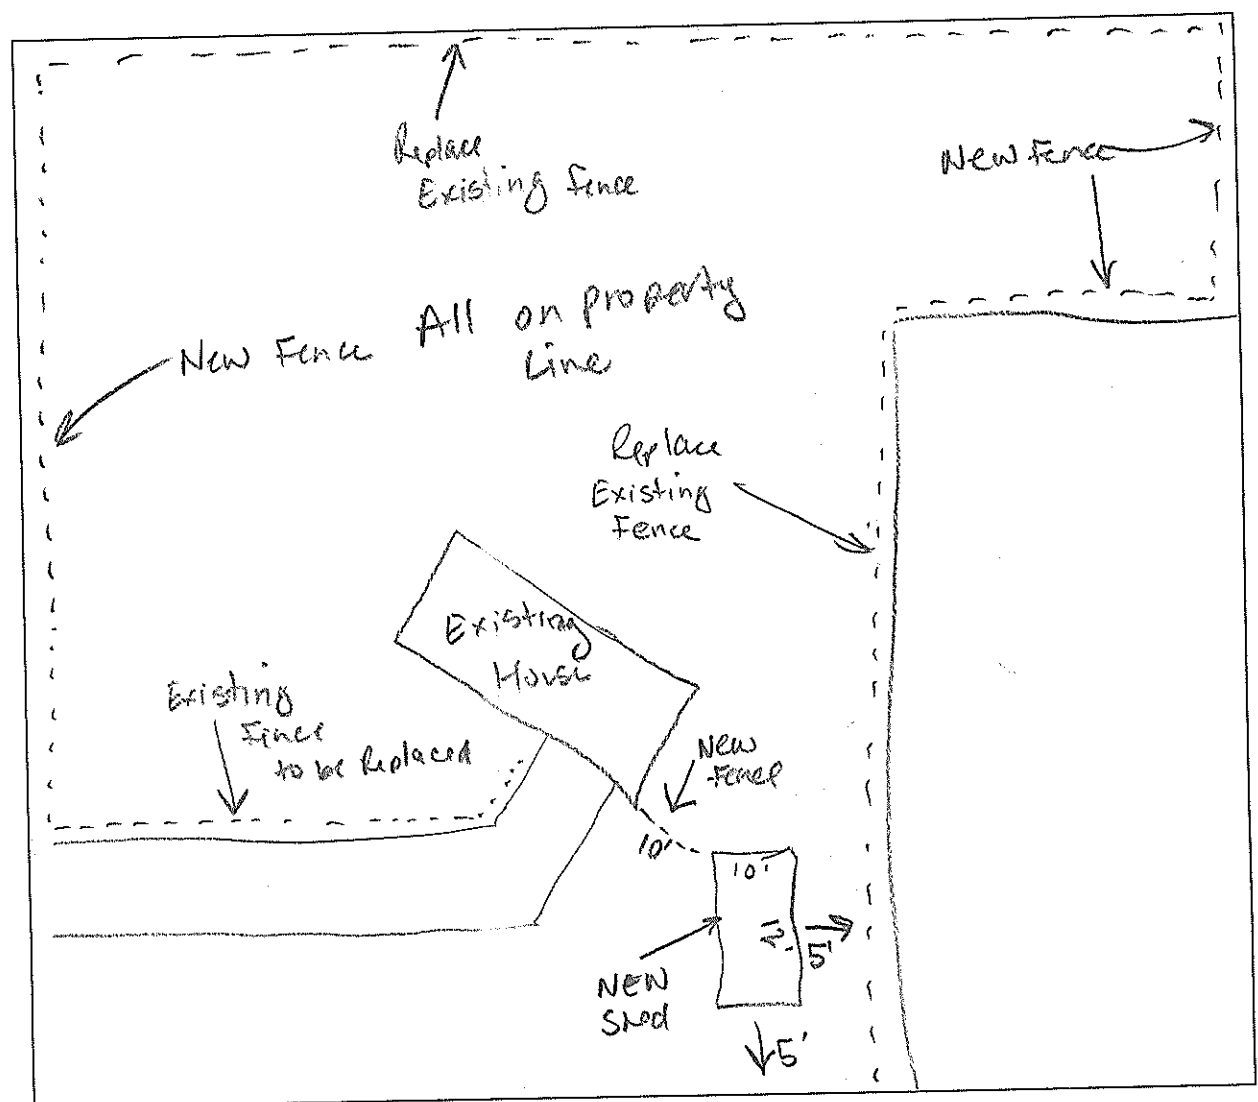 Replace
Existing Fence
New Fence
All on property
Line
New Fence
Replace
Existing
Fence
Existing
House
Existing
Fence
to be Replaced
New
Fence
10'
10'
12'
5'
NEW
Shed
5'